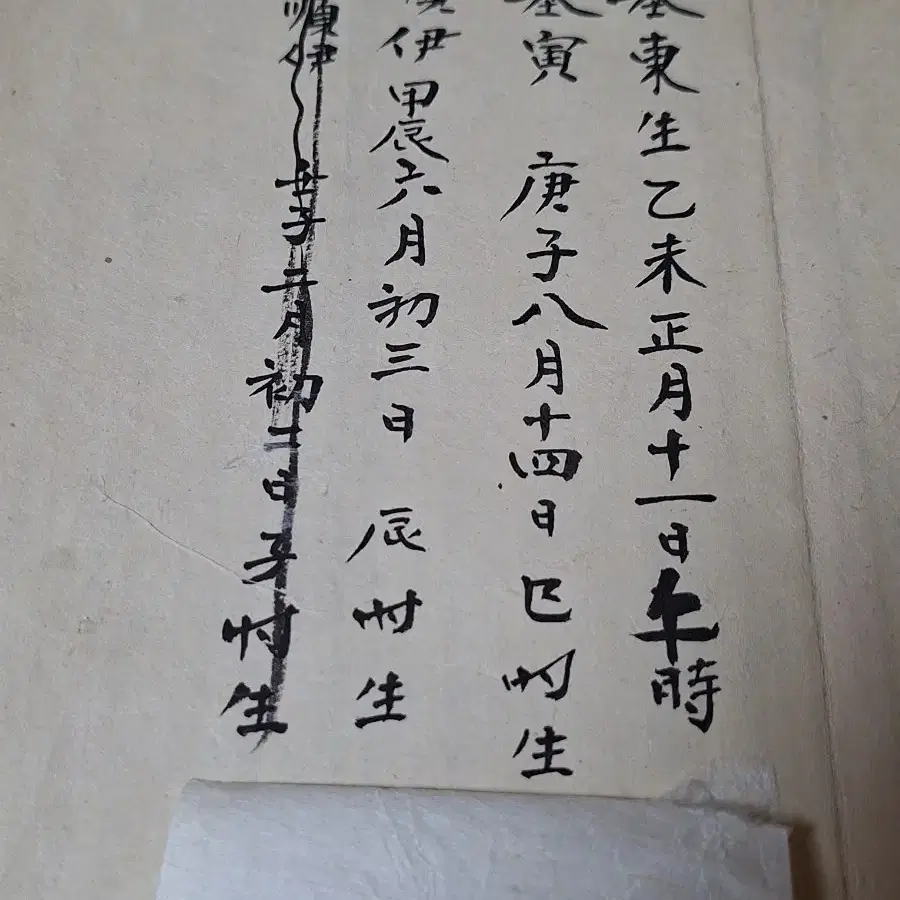 基東生乙未正月十一日午時
基寅 庚子八月十四日巳时生
伊甲辰六月初三日 辰时生
順伊 子二月初二日 时生